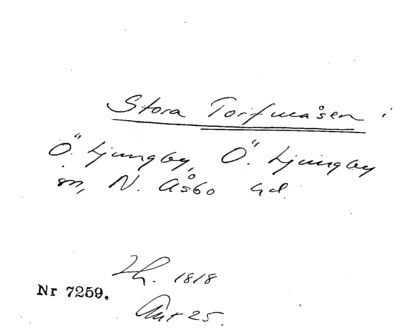 Stora Torfmåsen i
Ö. Ljungby, Ö. Ljungby
sn, N. Åsbo hd.
Lh. 1818
Nr 7259.
Akt 25.